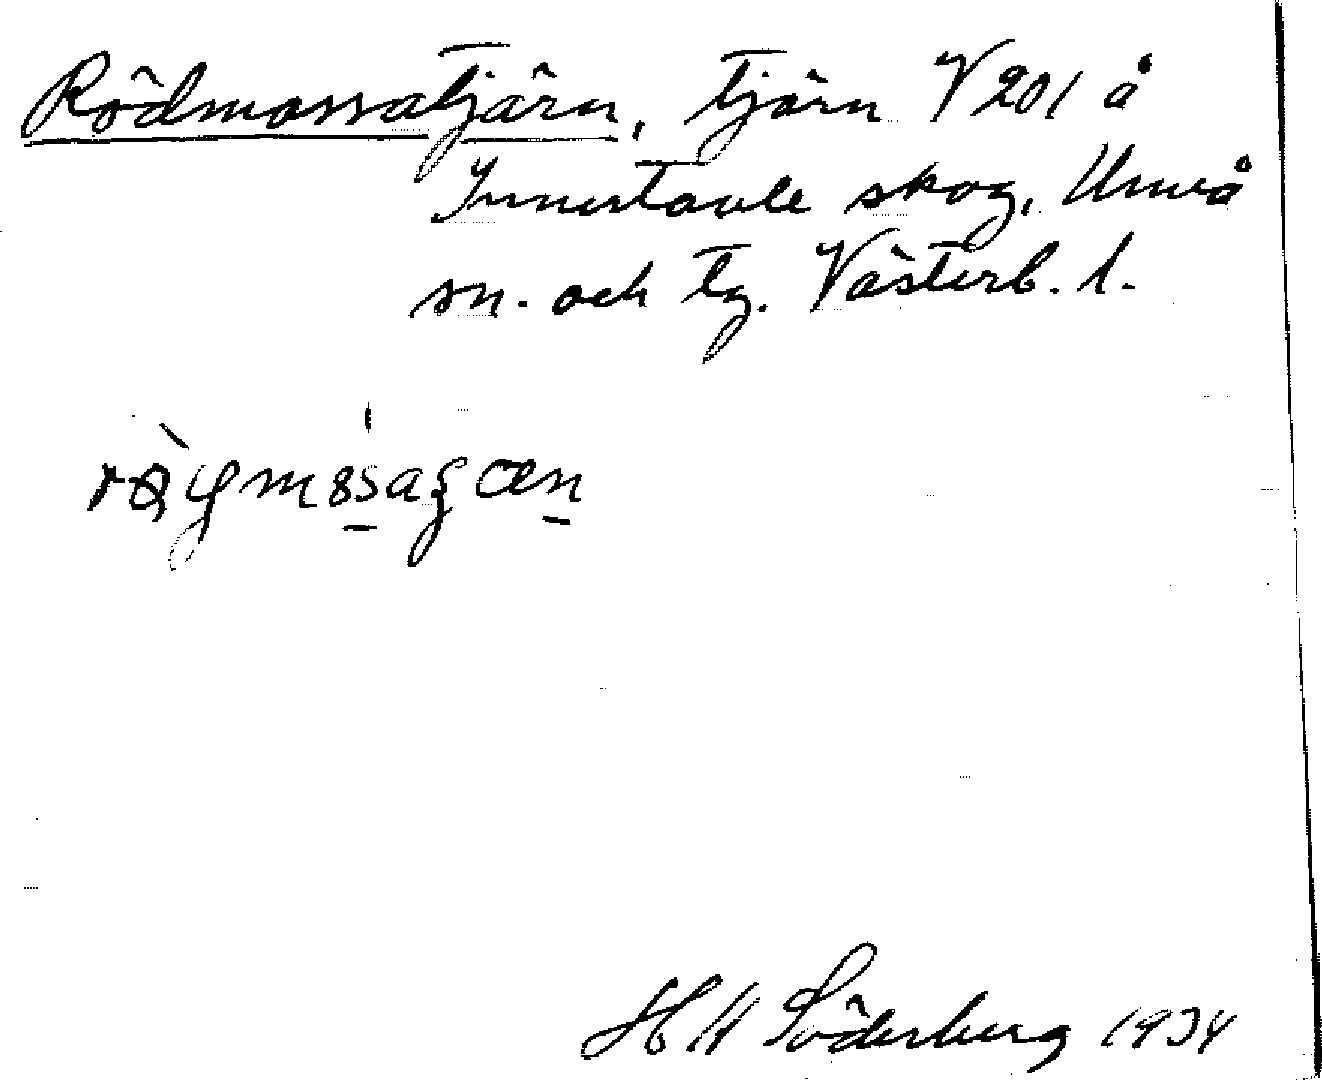 Rödmossatjärn, tjärn V 201 å
Innertavle skog, Umeå
sn. och tg. Västerb. l.
H H Söderberg 1934